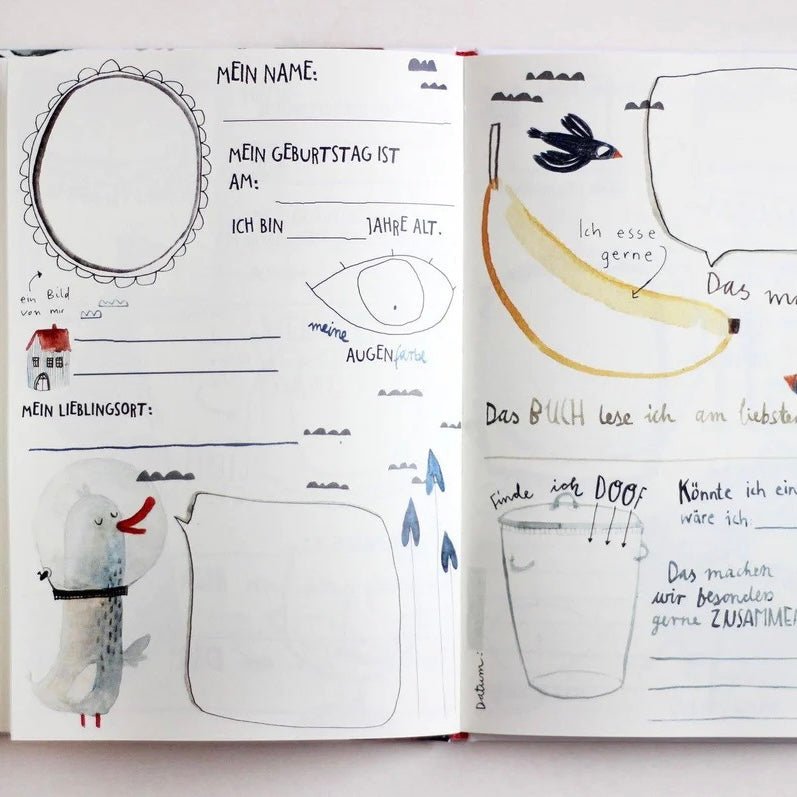 MEIN NAME:
MEIN GEBURTSTAG IST
AM:
ICH BIN JAHRE ALT.
ein Bild
von mir
meine
AUGENfarbe
MEIN LIEBLINGSORT:
Ich esse
gerne
Das ma
Das BUCH lese ich am liebsten
Finde ich DOOF
Könnte ich ein
wäre ich
Das machen
wir besonders
gerne ZUSAMMEN
Datum: